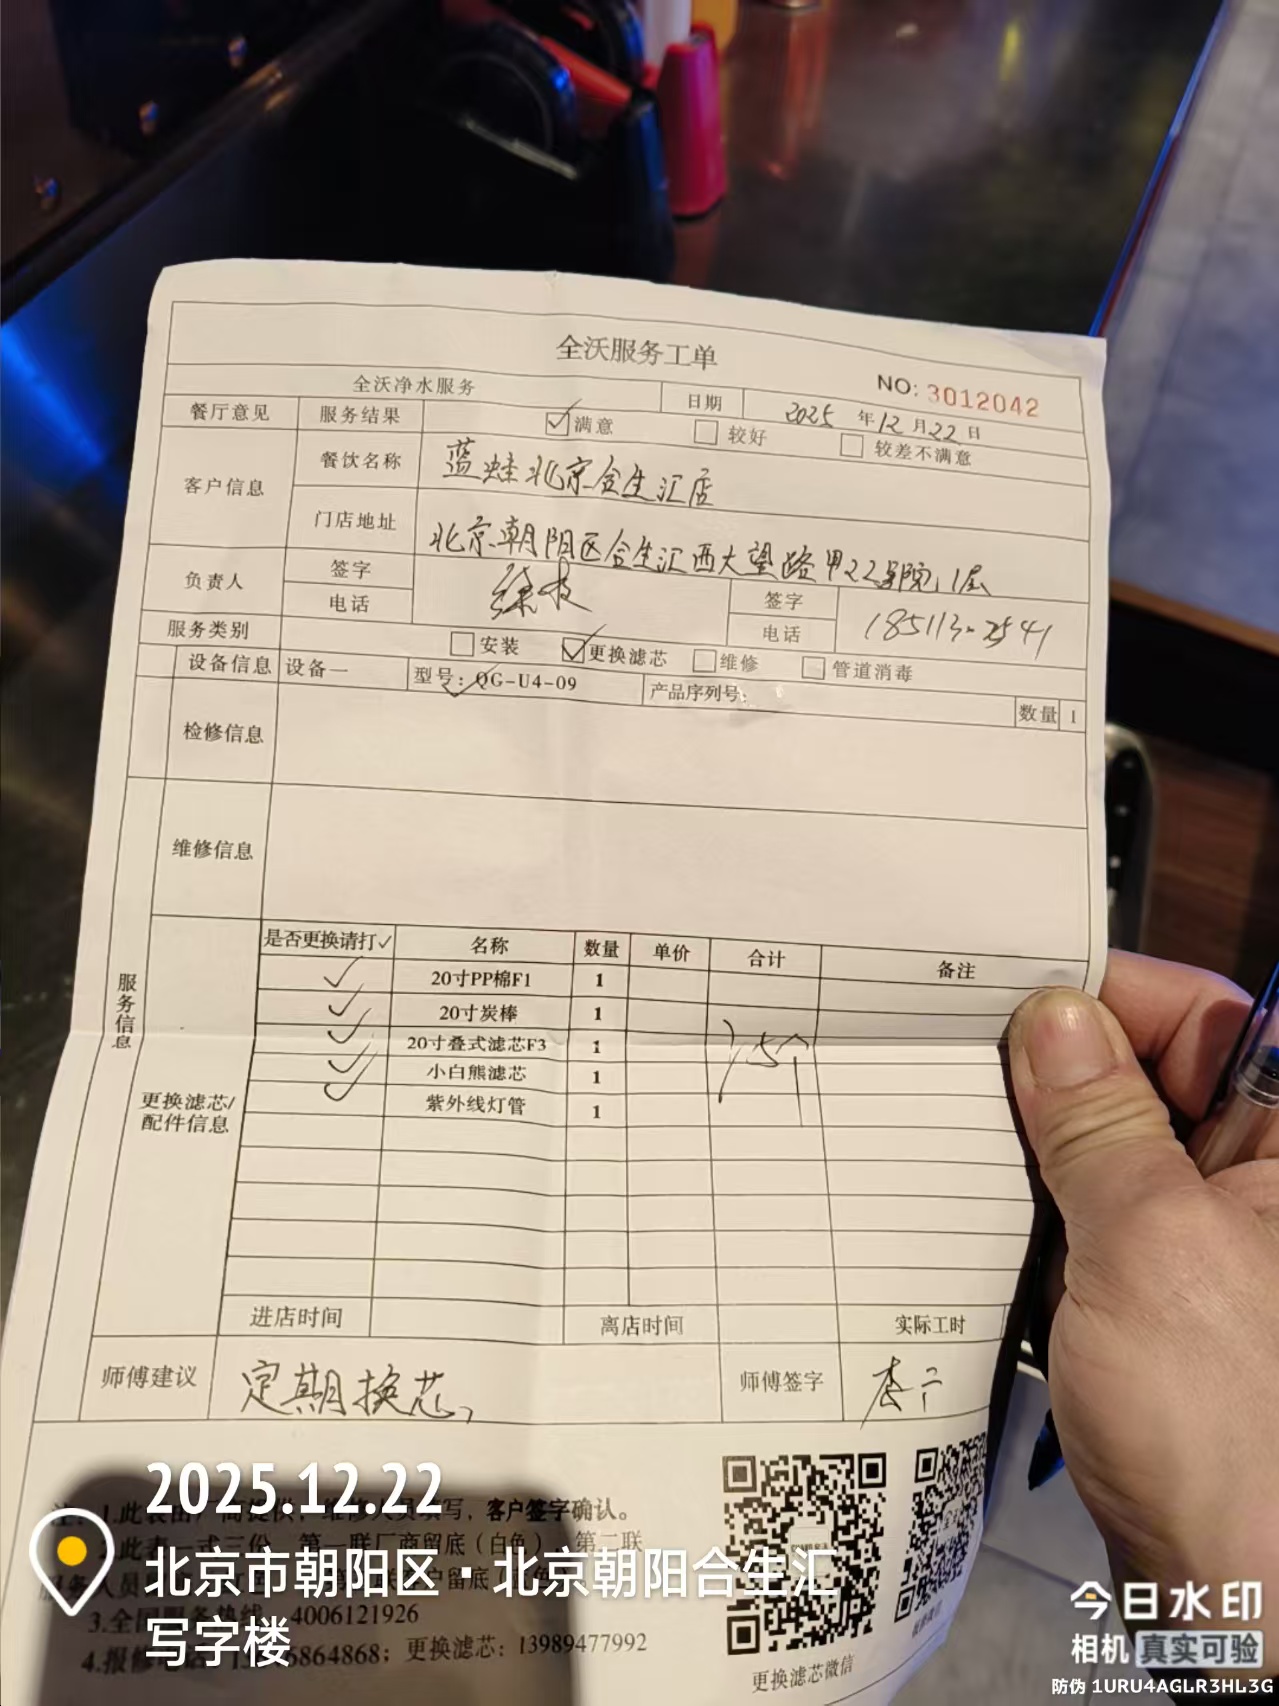 全沃服务工单
NO: 3012042
全沃净水服务 日期 2025 年 12 月 22 日
餐厅意见 服务结果 满意 较好 较差不满意
客户信息 餐饮名称 蓝蛙北京合生汇店
门店地址 北京朝阳区合生汇西大望路甲22号院,1层
负责人 签字 签字
电话 电话
服务类别 安装 更换滤芯 维修 管道消毒
设备信息 设备一 型号: QG-U4-09 产品序列号: 数量 1
检修信息
维修信息
服务信息
更换滤芯/
配件信息
是否更换请打✓ 名称 数量 单价 合计 备注
✓ 20寸PP棉F1 1
✓ 20寸炭棒 1
✓ 20寸叠式滤芯F3 1 5个
✓ 小白熊滤芯 1
✓ 紫外线灯管 1
进店时间 离店时间 实际工时
师傅建议 定期换芯, 师傅签字
1.此表由厂商提供,维修人员填写,客户签字确认。
此表一式三份 第一联厂商留底(白色),第二联
3.全国服务热线 4006121926
更换滤芯:13989477992
更换滤芯微信
2025.12.22
北京市朝阳区·北京朝阳合生汇
写字楼
今日水印
相机 真实可验
防伪 1URU4AGLR3HL3G